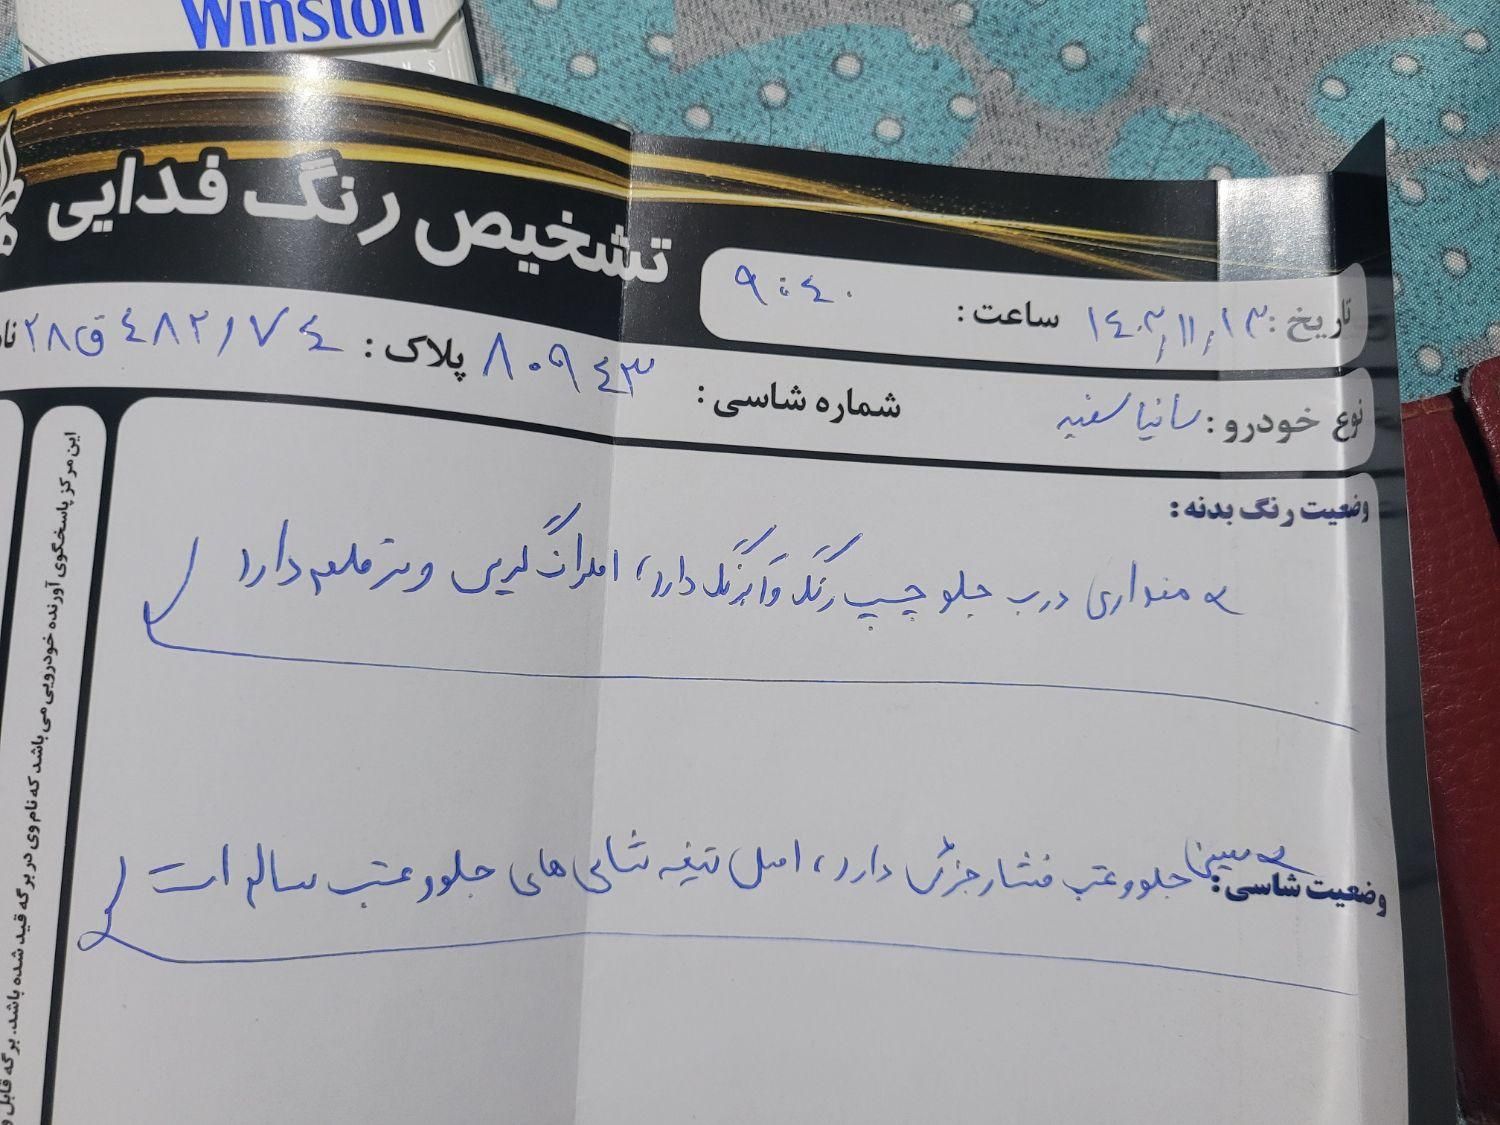 Winston
تشخیص رنگ فدایی
تاریخ: ۱۴۰۳/۱۱/۱۳ ساعت: ۹:۴۰
نوع خودرو: ساینا سفید شماره شاسی: ۸۰۹۴۳ پلاک: ۷۴/۴۸۲ق۲۸
وضعیت رنگ بدنه:
مقداری درب جلو چپ رنگ وَ بَرنگ دارد، اطراف گیری و قلم دارد
وضعیت شاسی: سینی جلو و عقب فشار جزئی دارد، اصل تیغه شاسی های جلو و عقب سالم است
این مرکز پاسخگوی آورنده خودرویی می باشد که نام وی در برگه قید شده باشد. برگه قابل